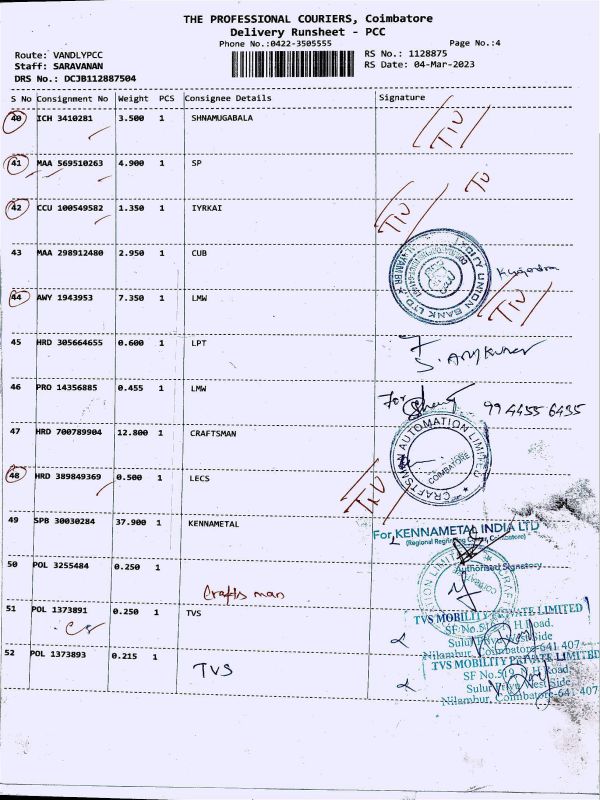 THE PROFESSIONAL COURIERS, Coimbatore
Delivery Runsheet - PCC
Phone No.:0422-3505555
Page No.:4
Route: VANDLYPCC
RS No.: 1128875
Staff: SARAVANAN
RS Date: 04-Mar-2023
DRS No.: DCJB112887504
S No Consignment No Weight PCS Consignee Details Signature
40 ICH 3410281 3.500 1 SHNAMUGABALA
41 MAA 569510263 4.900 1 SP
42 CCU 100549582 1.350 1 IYRKAI
43 MAA 298912480 2.950 1 CUB
44 AWY 1943953 7.350 1 LMW
45 HRD 305664655 0.600 1 LPT
46 PRO 14356885 0.455 1 LMW
For
99 4455 6435
47 HRD 700789904 12.800 1 CRAFTSMAN
CRAFTSMAN AUTOMATION LIMITED
COIMBATORE
48 HRD 389849369 0.500 1 LECS
49 SPB 30030284 37.900 1 KENNAMETAL
For KENNAMETAL INDIA LTD
Authorised Signatory
50 POL 3255484 0.250 1
Crafts man
51 POL 1373891 0.250 1 TVS
TVS MOBILITY PRIVATE LIMITED
SF No.519, N H Road,
Nilambur, Coimbatore-641 407
52 POL 1373893 0.215 1
TVS
TVS MOBILITY PRIVATE LIMITED
SF No.519, N H Road,
Nilambur, Coimbatore-641 407